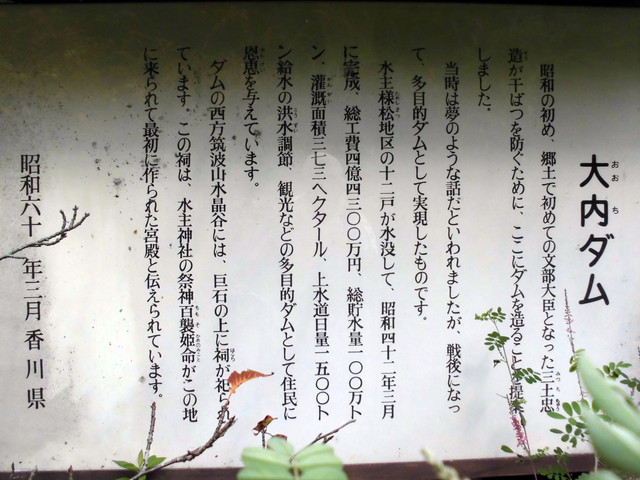 大内ダム
昭和の初め、郷土で初めての文部大臣となった三土忠
造が干ばつを防ぐために、ここにダムを造ることを提案
しました。
当時は夢のような話だといわれましたが、戦後になっ
て、多目的ダムとして実現したものです。
水主様松地区の十二戸が水没して、昭和四十二年三月
に完成、総工費四億四三〇〇万円、総貯水量一〇〇万ト
ン、灌漑面積三七三ヘクタール、上水道日量一五〇〇ト
ン給水の洪水調節、観光などの多目的ダムとして住民に
恩恵を与えています。
ダムの西方筑波山水晶谷には、巨石の上に祠が祀られ
ています。この祠は、水主神社の祭神百襲姫命がこの地
に来られて最初に作られた宮殿と伝えられています。
昭和六十 年三月 香川県